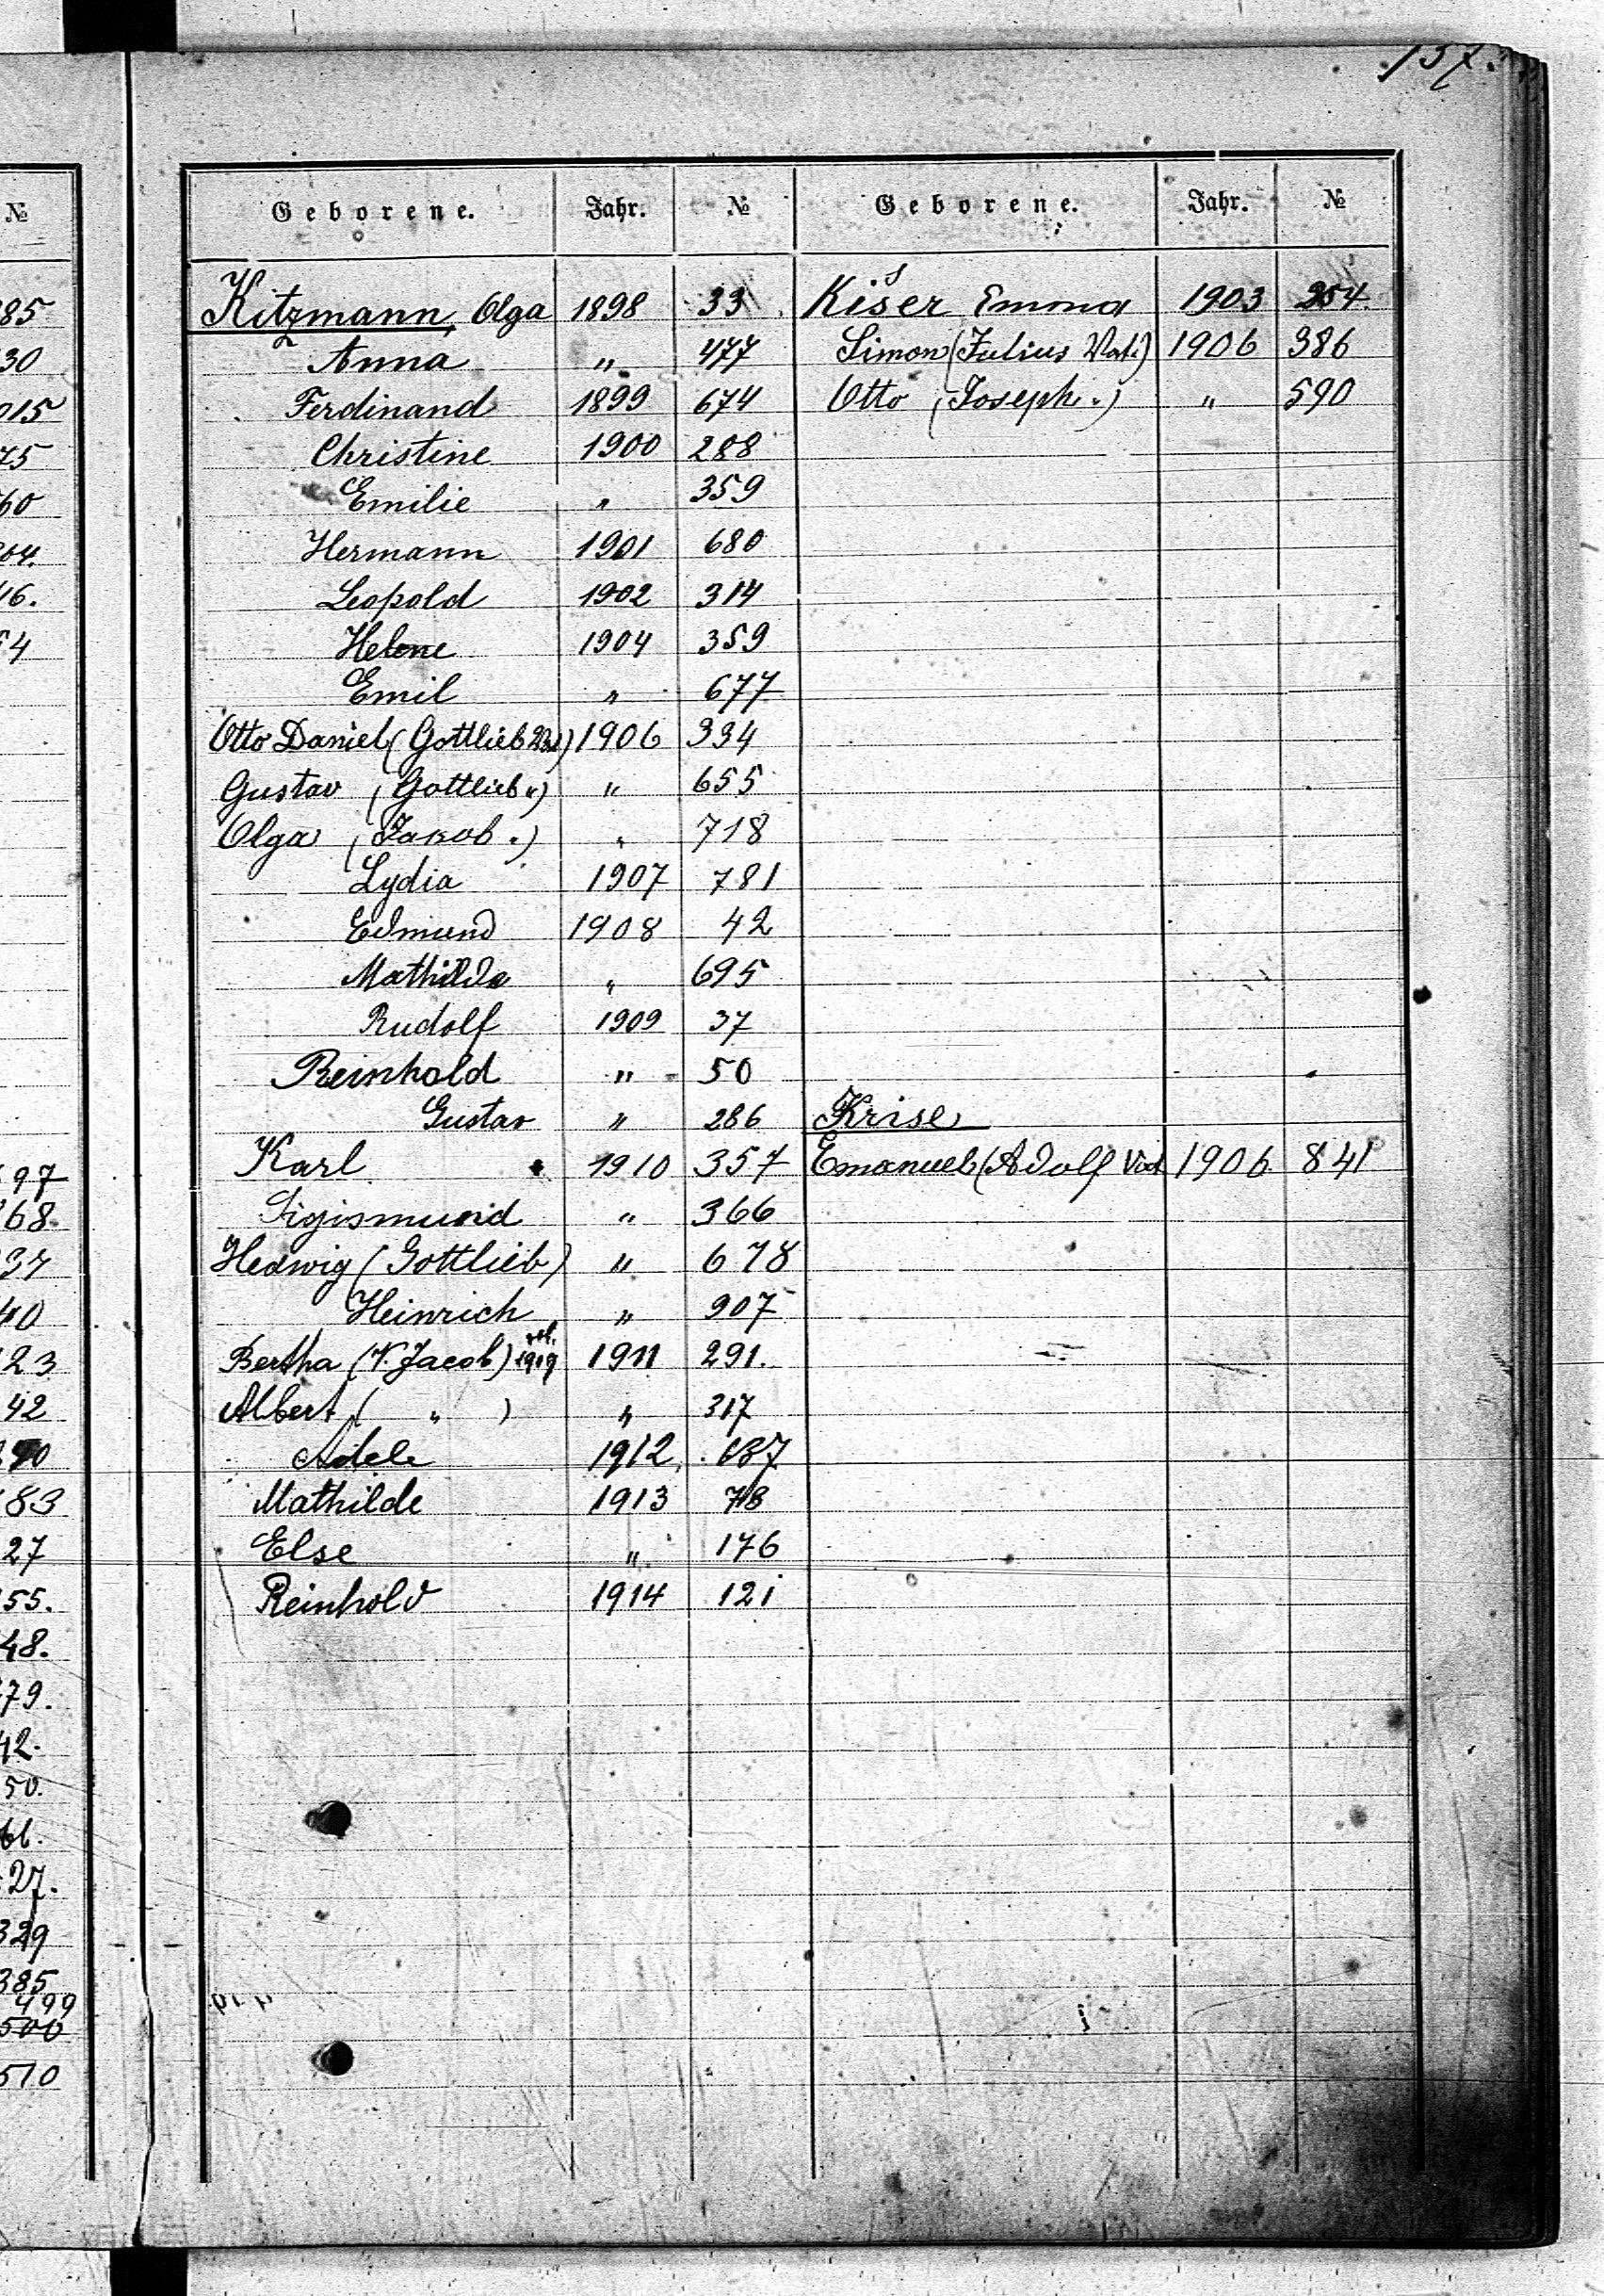 157.
Geborene. Jahr. № Geborene. Jahr. №
№
Kitzmann, Olga 1898 33 Kišer Emma 1903 254.
Anna " 477 Simon (Julius Vat.) 1906 386
Ferdinand 1899 674 Otto (Joseph ") " 590
Christine 1900 288
Emilie " 359
Hermann 1901 680
Leopold 1902 314
Helene 1904 359
Emil " 677
Otto Daniel (Gottlieb Vat) 1906 334
Gustav (Gottlieb ") " 655
Olga (Jakob ") " 718
Lydia 1907 781
Edmund 1908 42
Mathilde " 695
Rudolf 1909 37
Reinhold " 50
Gustav " 286 Krise
Karl 1910 357 Emanuel (Adolf Vat 1906 841
Sigismund " 366
Hedwig (Gottlieb) " 678
Heinrich " 907
Bertha (V. Jacob) 1919 1911 291.
Albert ( " ) " 317
Adele 1912 637
Mathilde 1913 78
Else " 176
Reinhold 1914 121
85
30
015
75
60
04.
16.
54
97
68.
37
40
23
42
83
27
55.
48.
79.
42.
50.
61.
27.
329
385
499
500
510